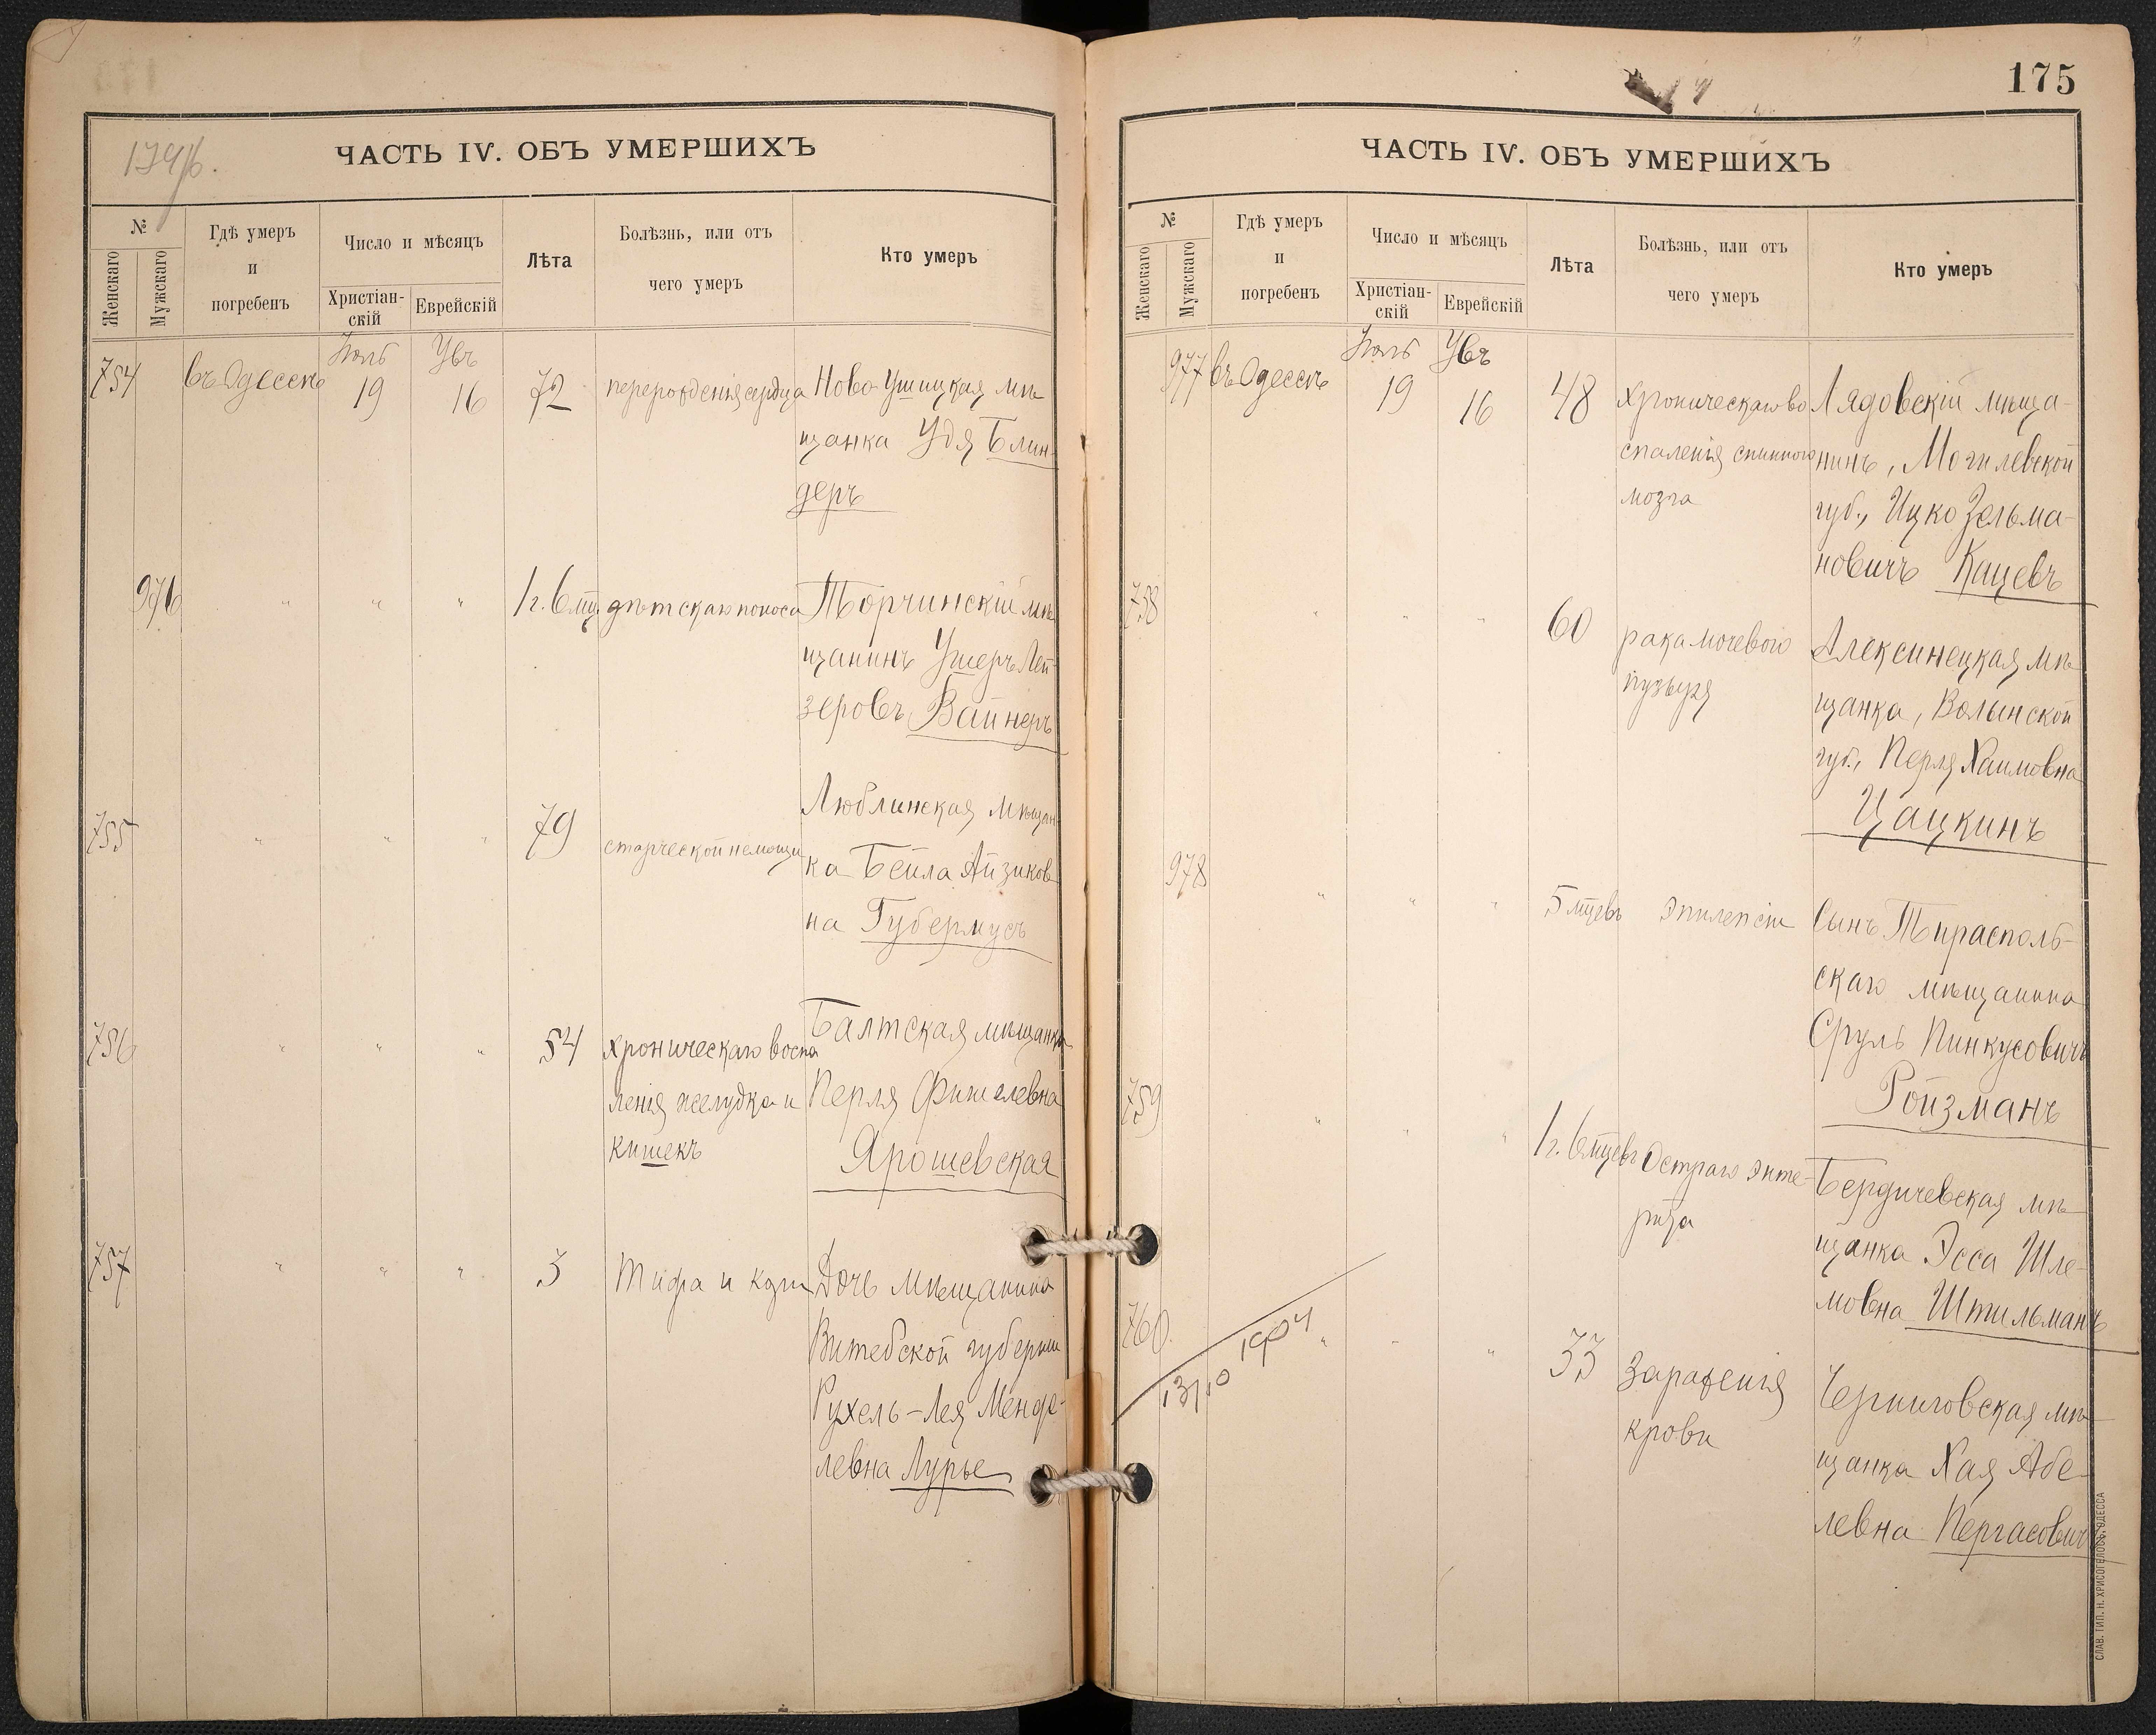 174/б.
ЧАСТЬ IV. ОБЪ УМЕРШИХЪ
№
Женскаго
Мужскаго
Гдѣ умеръ
и
погребенъ
Число и мѣсяцъ
Христіан-
скій
Еврейскій
Лѣта
Болѣзнь, или отъ
чего умеръ
Кто умеръ
Іюль Увъ
754 въ Одессѣ 19 16 72 перерожденія сердца Ново-Ушицкая мѣ
щанка Удя Блин-
деръ
976 " " " 1 г. 6 мц дѣтскаго поноса Торчинскій мѣ
щанинъ Ушеръ Лей
зеровъ Вайнеръ
755 " " " 79 старческой немощи Люблинская мѣщан
ка Бейла Айзиков
на Губермусъ
756 " " " 54 хроническаго воспа Балтская мѣщанка
ленія желудка и Перля Фишелевна
кишекъ Ярошевская
757 " " " 3 Тифа и Дочь мѣщанина
Витебской губерніи
Рухель-Лея Менде-
левна Лурье
175
ЧАСТЬ IV. ОБЪ УМЕРШИХЪ
№
Женскаго
Мужскаго
Гдѣ умеръ
и
погребенъ
Число и мѣсяцъ
Христіан-
скій
Еврейскій
Лѣта
Болѣзнь, или отъ
чего умеръ
Кто умеръ
Іюль Увъ
977 въ Одессѣ 19 16 48 хроническаго во Лядовскій мѣща-
спаленія спинного нинъ, Могилевской
мозга губ., Ицко Зельма-
новичъ Кацевъ
758 " " " 60 рака мочевого Алексинецкая мѣ
пузыря щанка, Волынской
губ., Перля Хаимовна
Цацкинъ
978 " " " 5 мцевъ Эпилепсіи Сынъ Тирасполь-
скаго мѣщанина
Сруль Пинкусовичъ
Ройзманъ
759 " " " 1 г. 6 мцевъ Остраго энте- Бердичевская мѣ
рита щанка Эсса Шле-
мовна Штильманъ
760. " " " 33 Зараженія Черниговская мѣ
крови щанка Хая Абе-
левна Пергасовичъ
1904
СЛАВ. ТИП. Н. ХРИСОГЕЛОСЪ, ОДЕССА